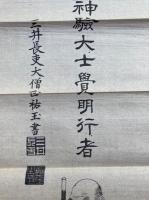 神驗大士覺明行者
三井長吏大僧正祐玉書